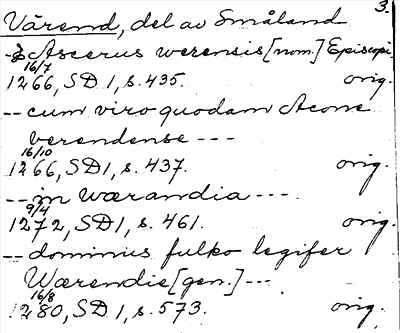 3.
Värend, del av Småland
-- Ascerus werensis [nom.] Episcopi
16/7
1266, SD 1, s. 435. orig.
-- cum viro quodam Acone
verendense ---
16/10
1266, SD 1, s. 437. orig.
-- in Wærandia ---
9/4
1272, SD 1, s. 461. orig.
-- dominus fulko legifer
Wærendie [gen.] ---
16/8
1280, SD 1, s. 573. orig.